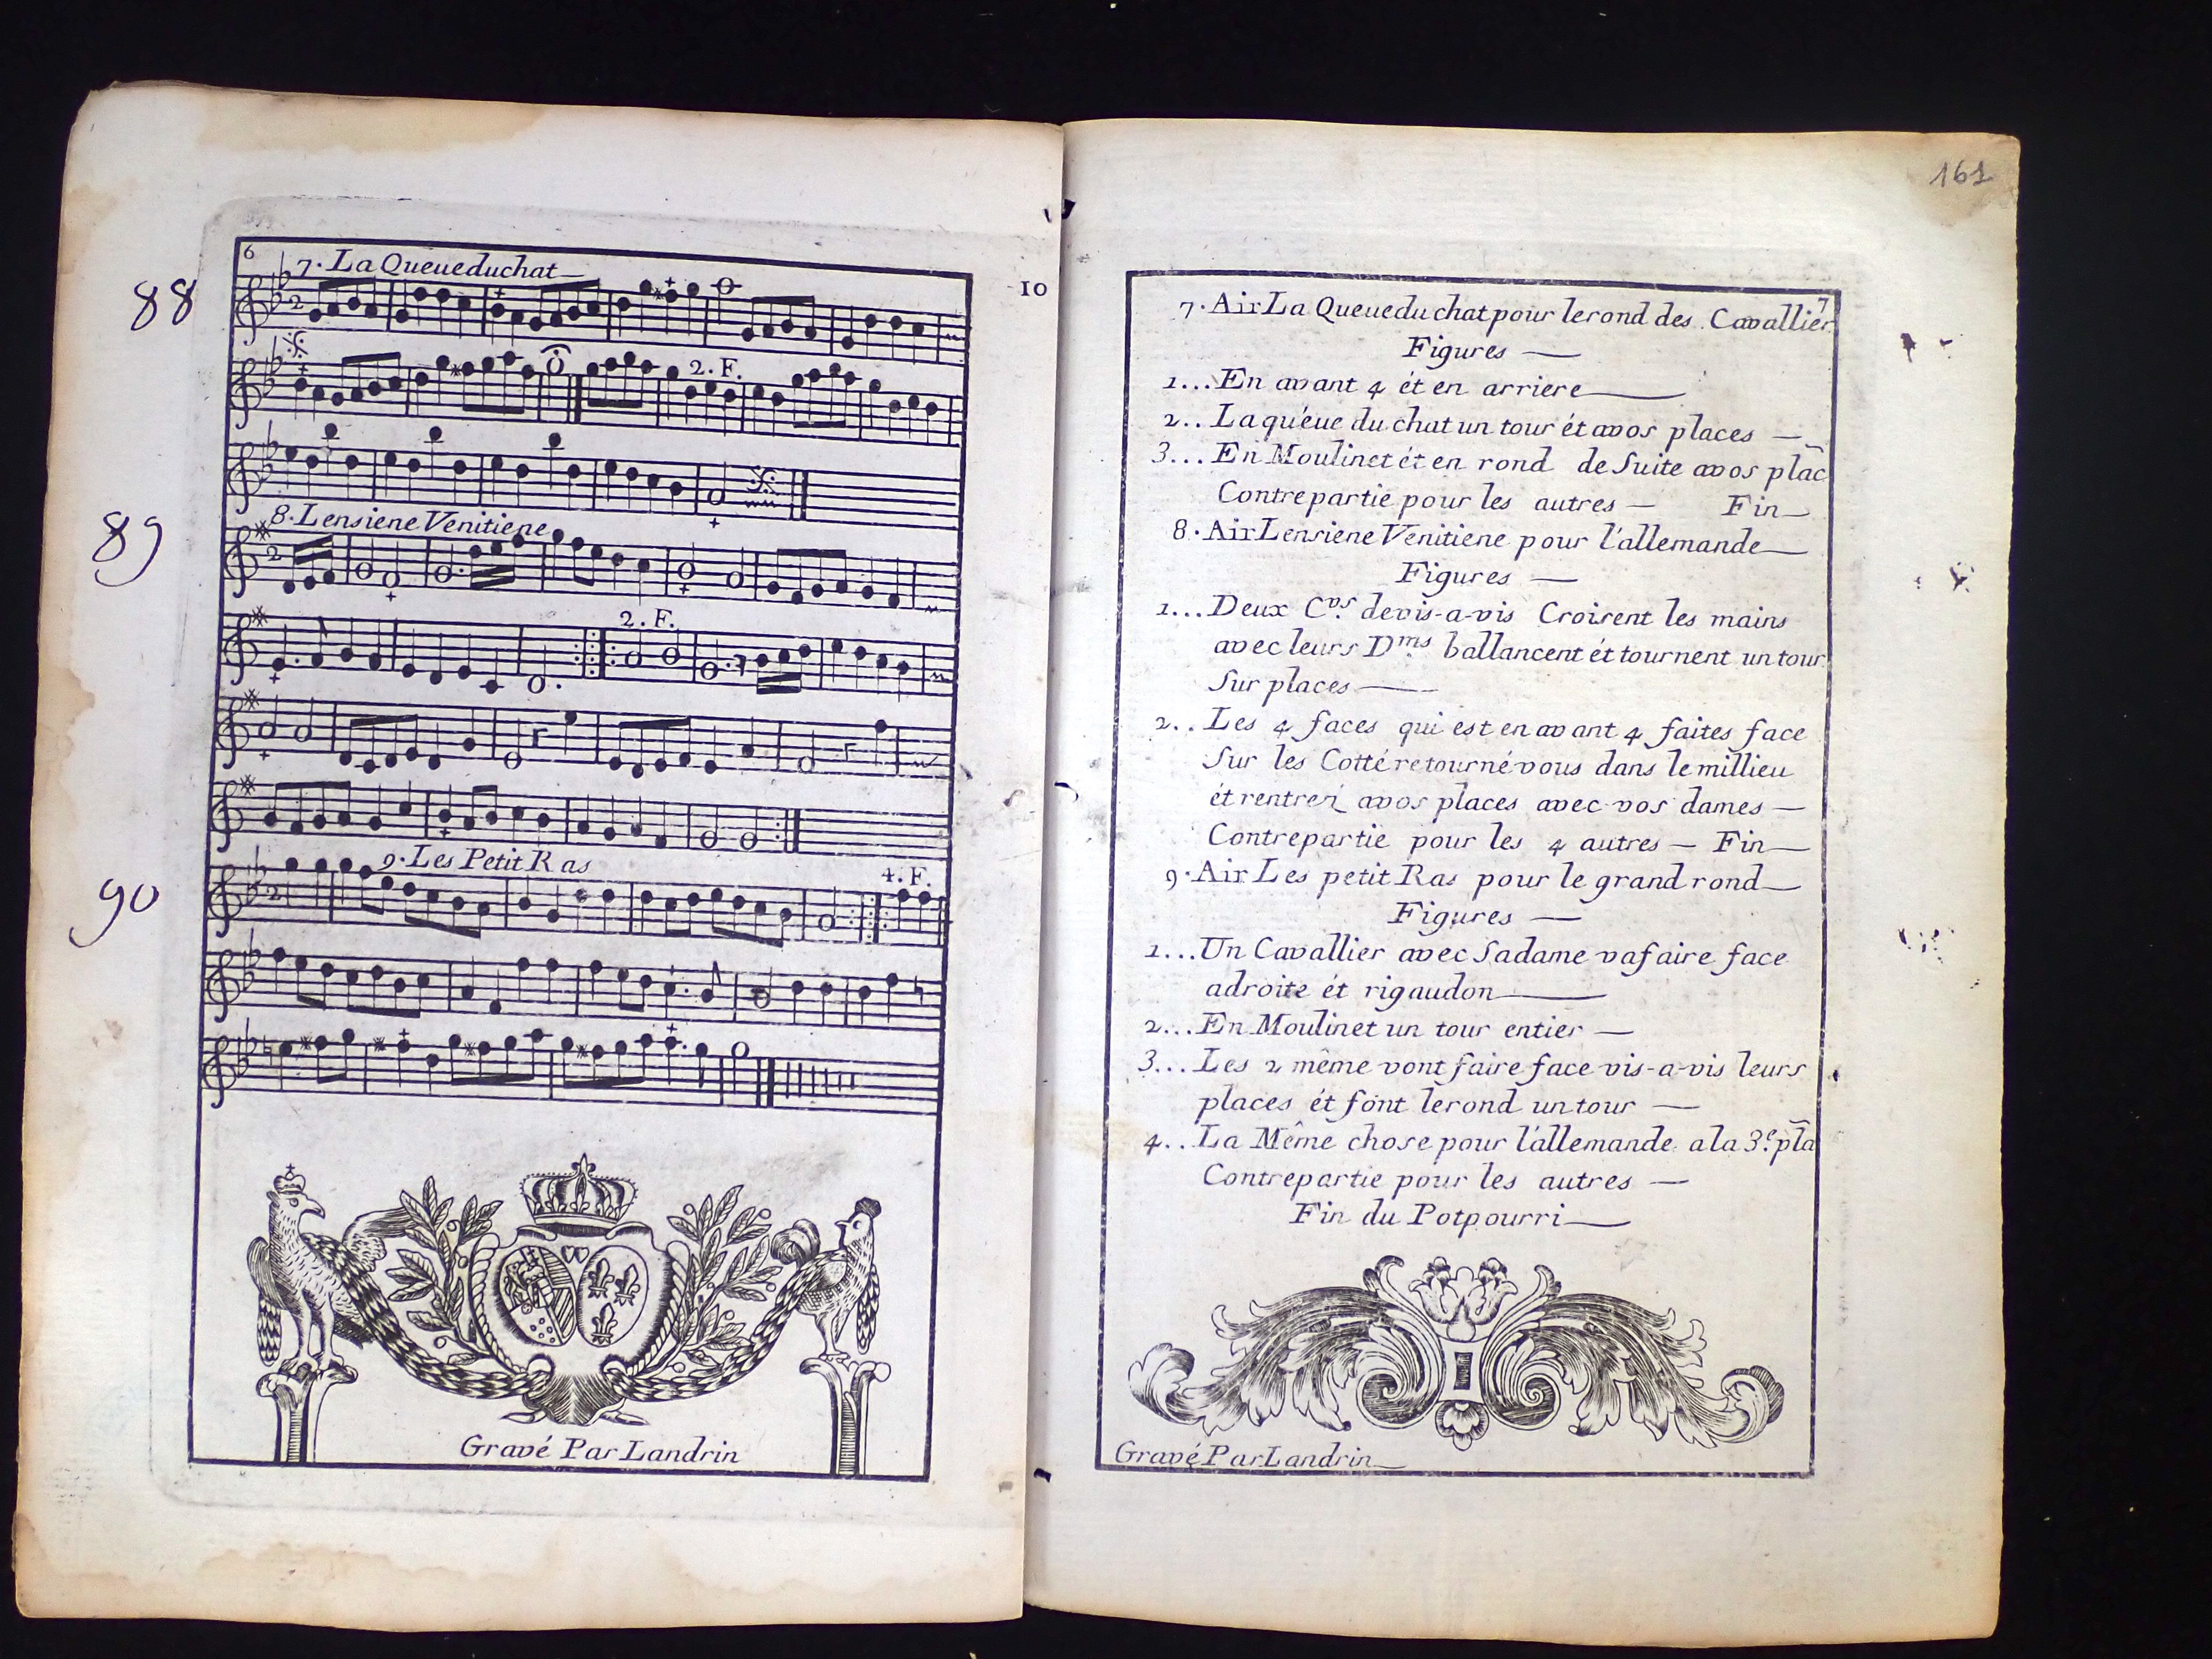 88
89
90
6
7. La Queue du chat
2
2. F.
8. Lensiene Venitiene
2
2. F.
9. Les Petit Ras
2
4. F.
Gravé Par Landrin
10
161
7
7. Air La Queue du chat pour le rond des Cavallier
Figures
1... En avant 4 ét en arriere
2.. La quéue du chat un tour ét avos places
3... En Moulinet ét en rond de Suite avos plac
Contrepartie pour les autres — Fin
8. Air Lensiene Venitiene pour l'allemande
Figures
1... Deux Cvrs devis-a-vis Croisent les mains
avec leurs Dms ballancent ét tournent un tour
Sur places
2.. Les 4 faces qui est en avant 4 faites face
Sur les Cotté retourné vous dans le millieu
ét rentrez avos places avec vos dames
Contrepartie pour les 4 autres — Fin
9. Air Les petit Ras pour le grand rond
Figures
1... Un Cavallier avec Sadame va faire face
adroite ét rigaudon
2... En Moulinet un tour entier
3... Les 2 même vont faire face vis-a-vis leurs
places ét font le rond un tour
4.. La Même chose pour l'allemande a la 3e. pla
Contrepartie pour les autres
Fin du Potpourri
Gravé Par Landrin